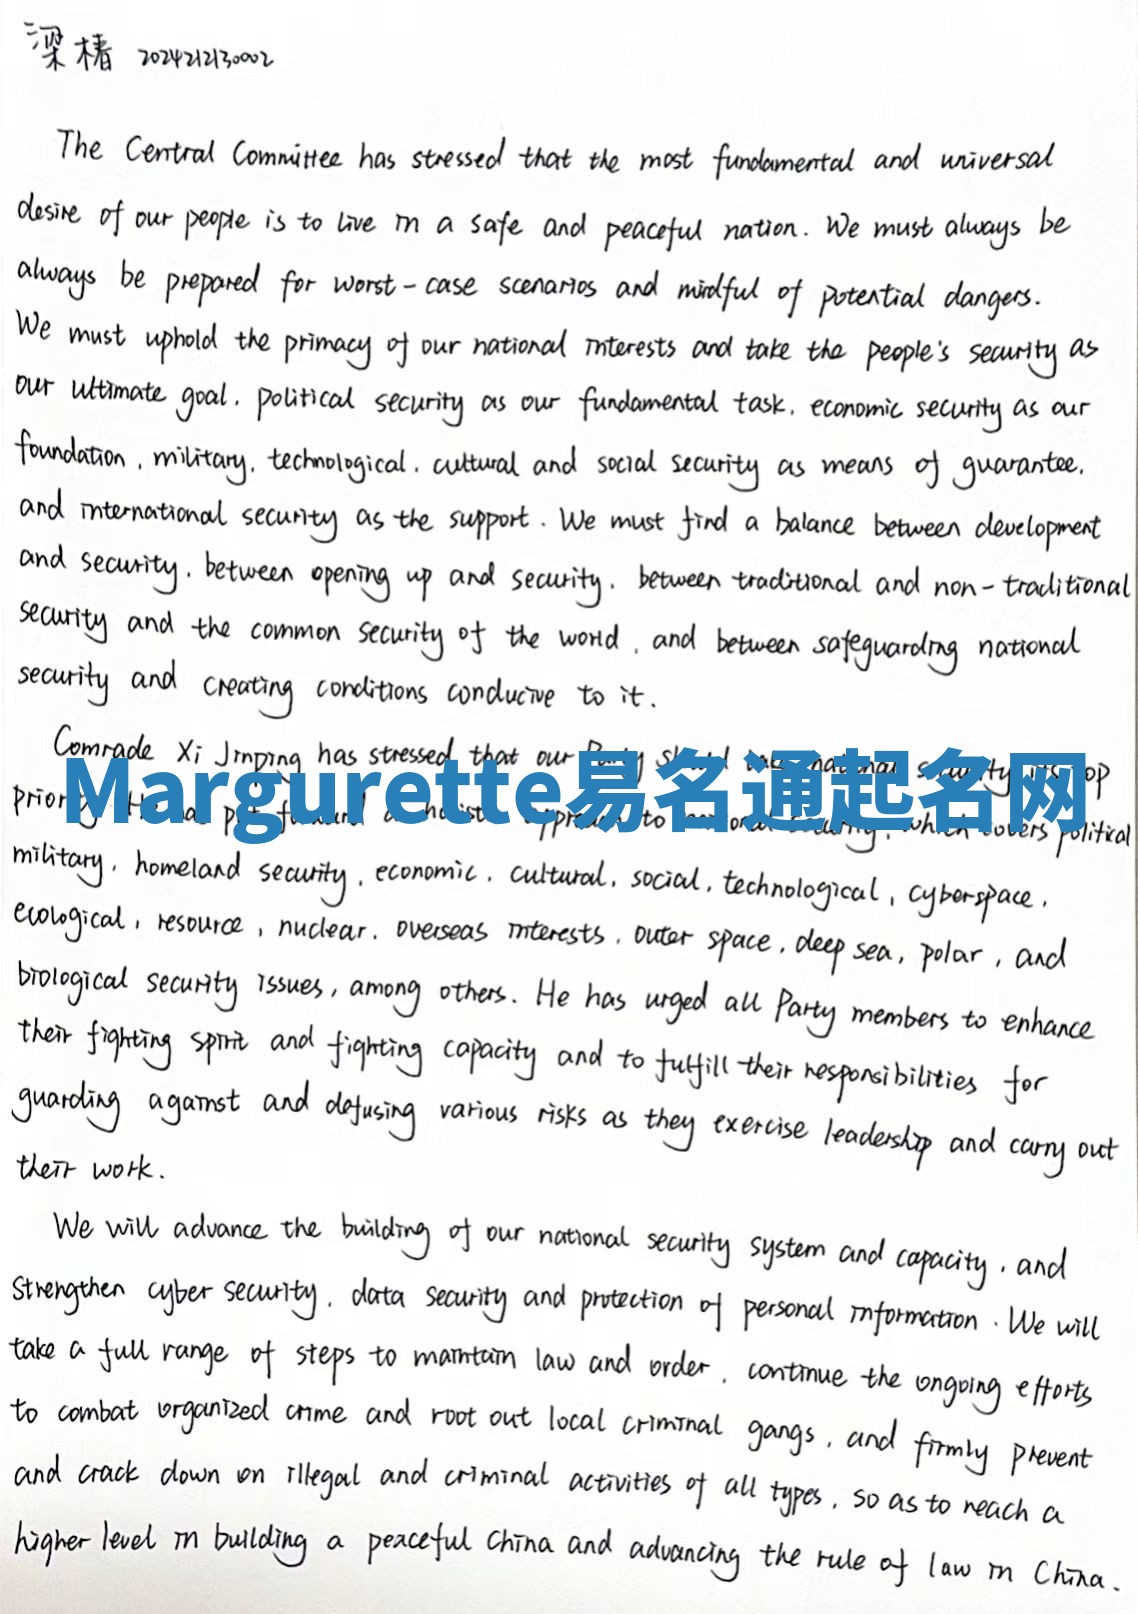 梁椿 2024212130002
The Central Committee has stressed that the most fundamental and universal
desire of our people is to live in a safe and peaceful nation. We must always be
always be prepared for worst-case scenarios and mindful of potential dangers.
We must uphold the primacy of our national interests and take the people's security as
our ultimate goal, political security as our fundamental task, economic security as our
foundation, military, technological, cultural and social security as means of guarantee,
and international security as the support. We must find a balance between development
and security, between opening up and security, between traditional and non-traditional
security and the common security of the world, and between safeguarding national
security and creating conditions conducive to it.
Comrade Xi Jinping has stressed that our Party national security its top
Margurette易名通起名网
to which covers political
military, homeland security, economic, cultural, social, technological, cyberspace,
ecological, resource, nuclear, overseas interests, outer space, deep sea, polar, and
biological security issues, among others. He has urged all Party members to enhance
their fighting spirit and fighting capacity and to fulfill their responsibilities for
guarding against and defusing various risks as they exercise leadership and carry out
their work.
We will advance the building of our national security system and capacity, and
strengthen cyber security, data security and protection of personal information. We will
take a full range of steps to maintain law and order, continue the ongoing efforts
to combat organized crime and root out local criminal gangs, and firmly prevent
and crack down on illegal and criminal activities of all types, so as to reach a
higher level in building a peaceful China and advancing the rule of law in China.